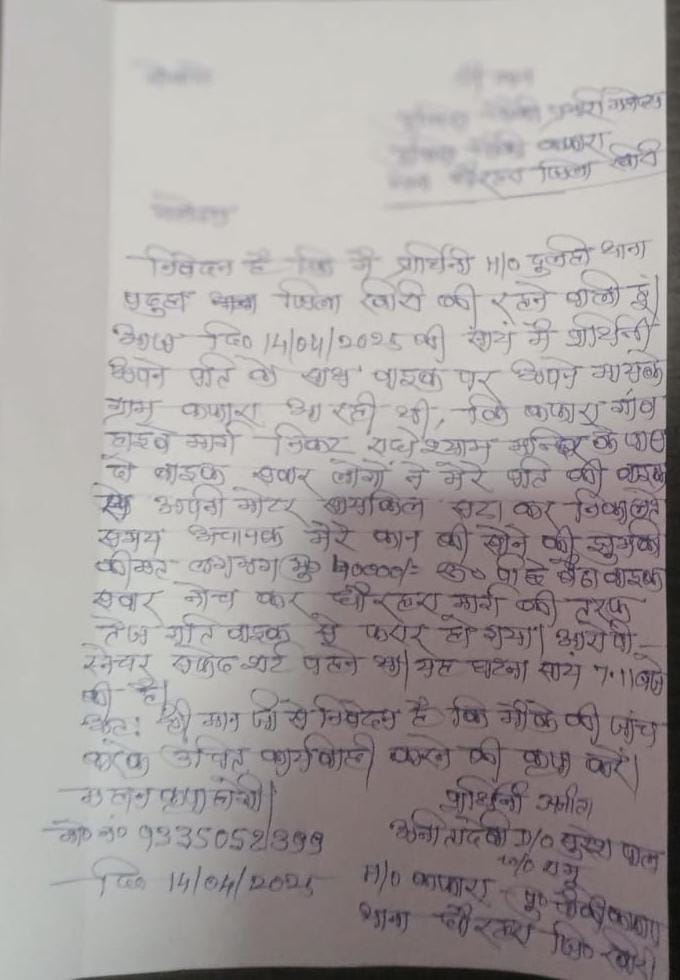 सेवा में
श्री मान
पुलिस चौकी प्रभारी महोदय
पुलिस चौकी कफारा
थाना धौरहरा जिला खीरी
महोदय
निवेदन है कि मैं प्रार्थिनी H/O दुलही थाना
पढुआ जिला खीरी की रहने वाली हूं।
आज दि० 14/04/2025 की सायं मैं प्रार्थिनी
अपने पति के साथ बाइक पर अपने मायके
ग्राम कफारा आ रही थी, कि कफारा गाँव
हाइवे मार्ग निकट राधेश्याम मन्दिर के पास
दो बाइक सवार लोगों ने मेरे पति की बाइक
से अपनी मोटर सायकिल सटा कर निकालते
समय अचानक मेरे कान की सोने की झुमकी
कीमत लगभग मु० रू० पीछे बैठा बाइक
सवार नोच कर धौरहरा मार्ग की तरफ
तेज गति बाइक से फरार हो गया। आरोपी
स्नेचर सफेद शर्ट पहने था। यह घटना सायं 7.11 बजे
की है।
अतः श्री मान जी से निवेदन है कि मौके की जांच
करके उचित कार्यवाही करने की कृपा करें।
महान कृपा होगी।
प्रार्थिनी
मो० नं० 9335052399
अनीतादेवी D/O सुरेश पाल
W/O
दि० 14/04/2025
H/O कफारा पु० चौकी कफारा
थाना धौरहरा जि० खीरी